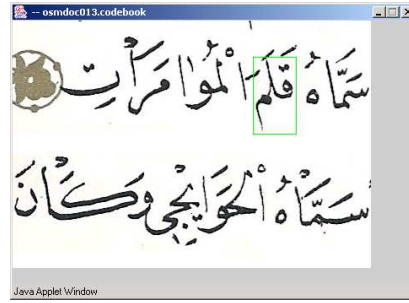 -- osmdoc013.codebook
سَمَّاهُ قَلَمَ الْمُوامَرَاتِ
سَمَّاهُ الْحَوَايِجِي وَكَانَ
Java Applet Window